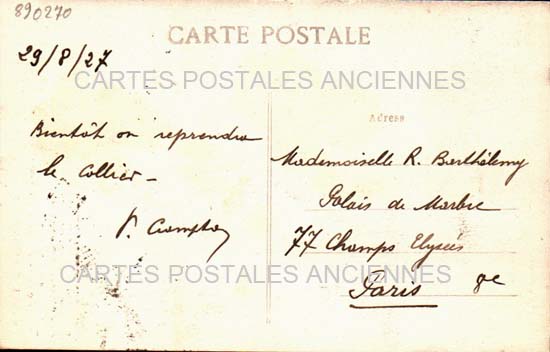 890270
CARTE POSTALE
29/8/27
CARTES POSTALES ANCIENNES
Adress
Bientôt on reprendra
le collier -
Mademoiselle R. Barthélemy
Palais de Marbre
77 Champs Elysées
CARTES POSTALES ANCIENNES
Paris 8e